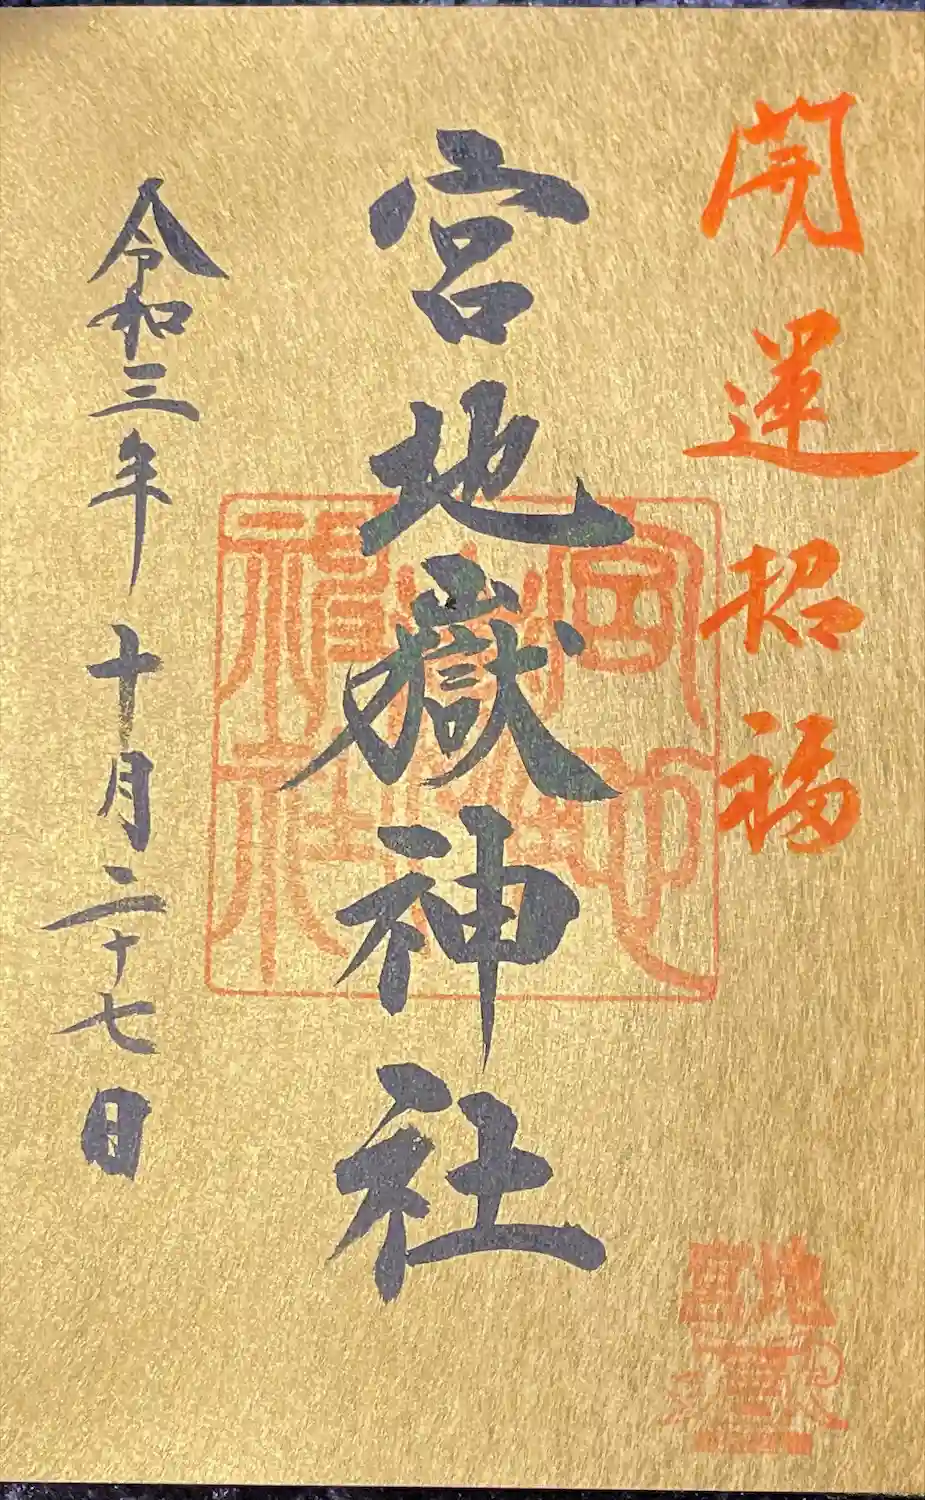 開運招福
宮地嶽神社
令和三年十月二十七日
宮地嶽神社